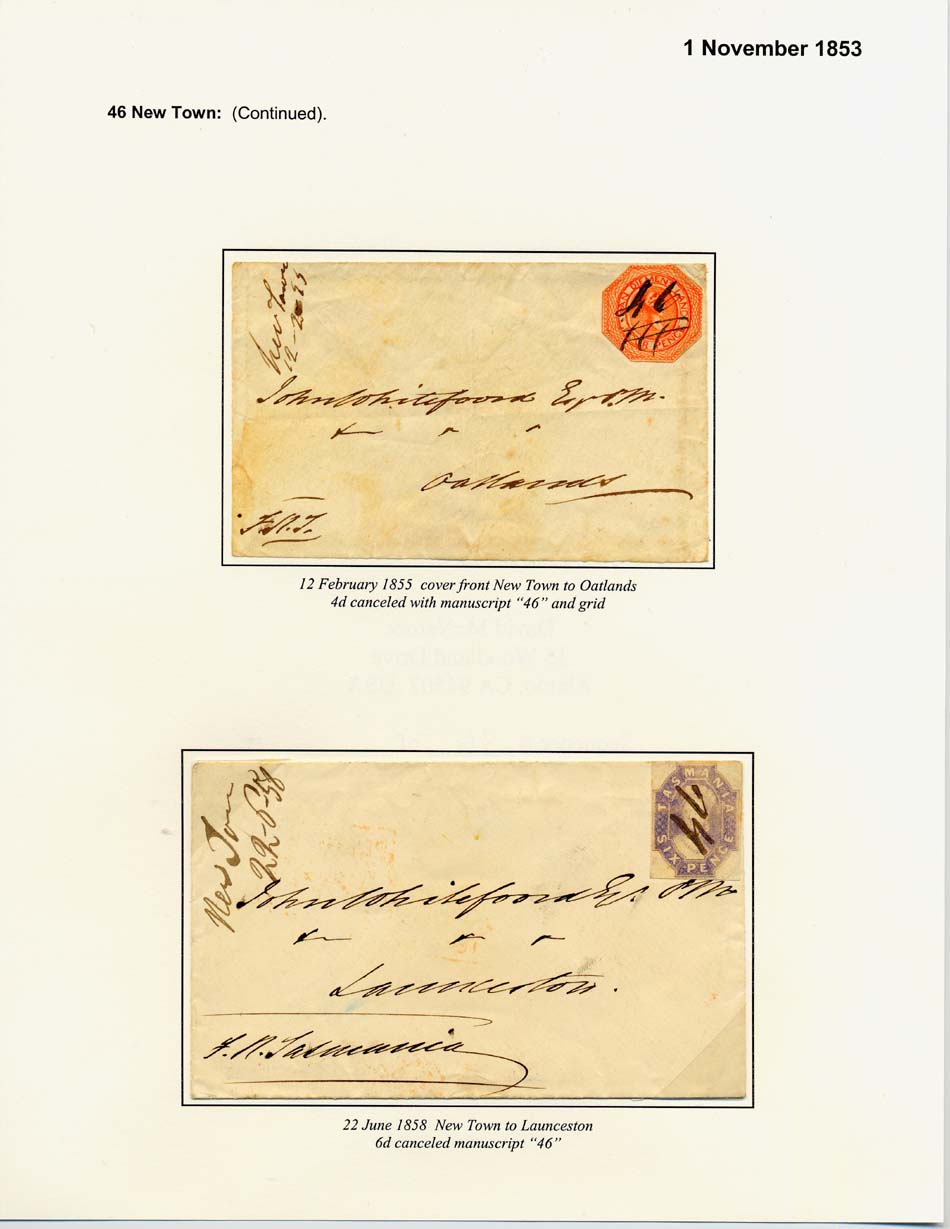 1 November 1853
46 New Town: (Continued).
New Town
12-2-55
VAN DIEMENS LAND
FOUR PENCE
46
John Whitefoord Esqr P.M.
Oatlands
F.R.T.
12 February 1855 cover front New Town to Oatlands
4d canceled with manuscript “46” and grid
New Town
22-6-58
TASMANIA
SIX PENCE
46
John Whitefoord Esqr. P.M.
Launceston.
F. R. Tasmania
22 June 1858 New Town to Launceston
6d canceled manuscript “46”